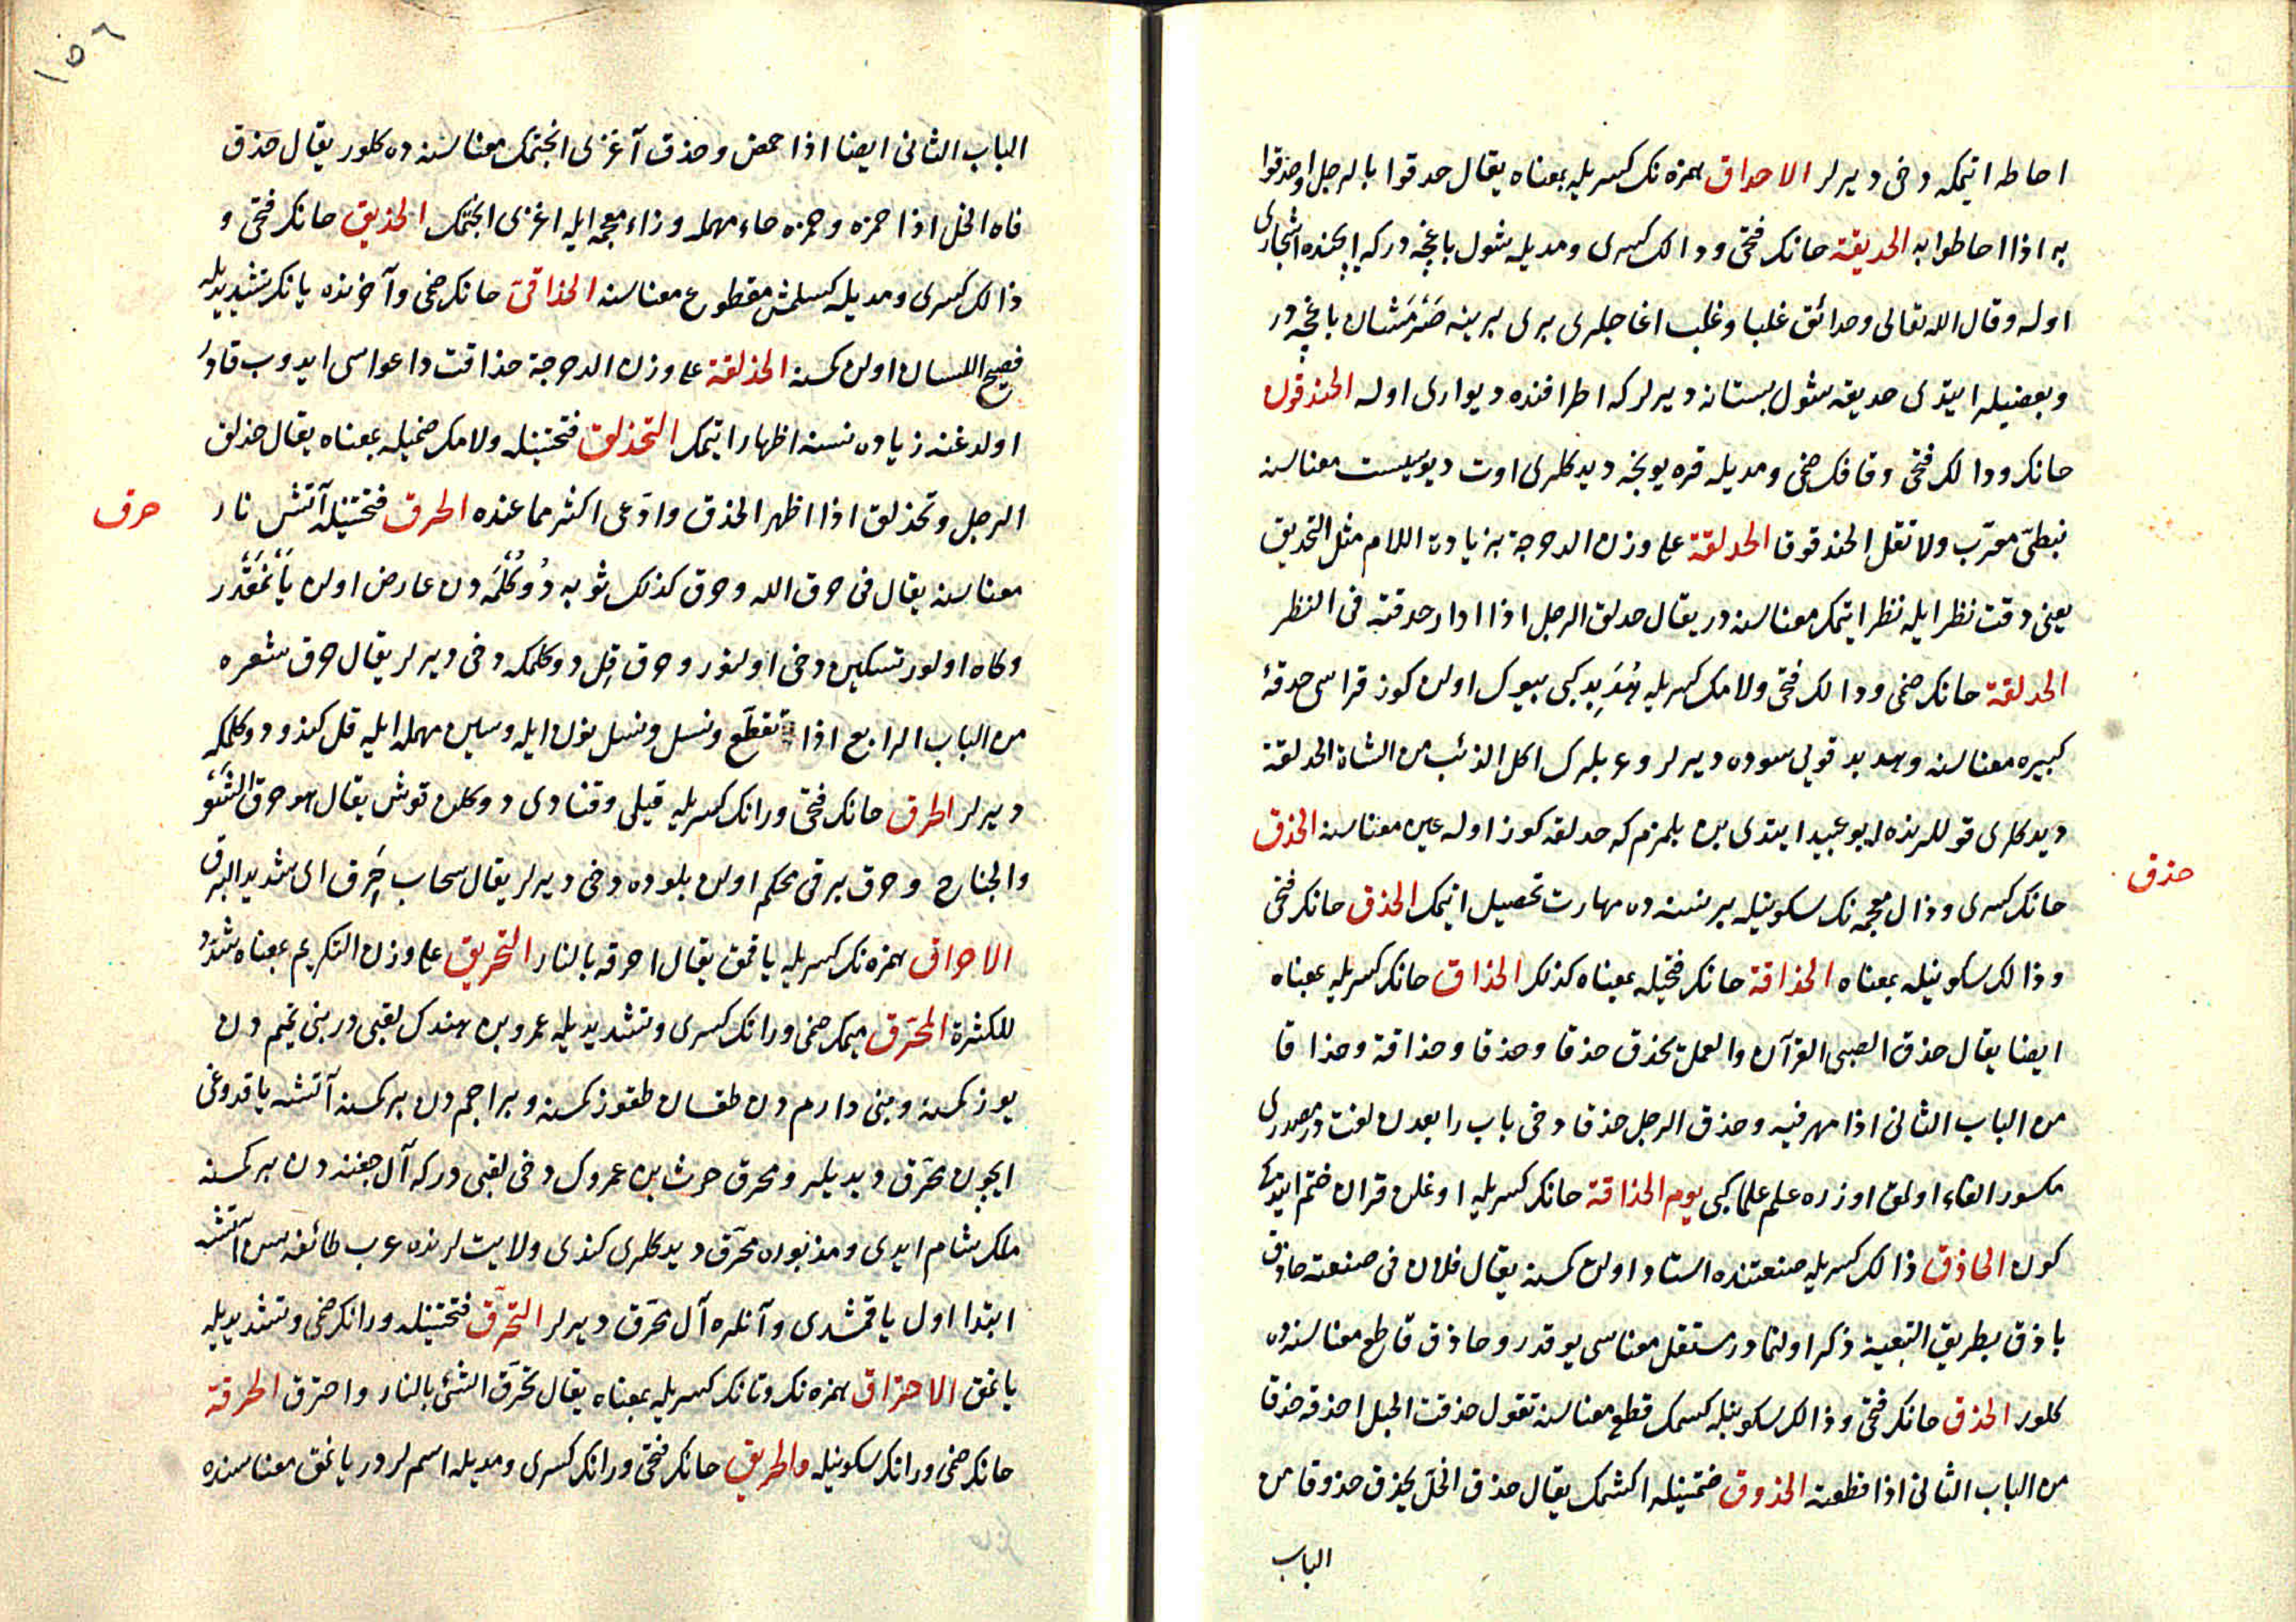 احاطه ایتمكه دخی دیرلر الاحداق همزه نك كسریله بمعناه یقال حدقوا بالرجل واحدقوا
به اذا احاطوا به الحدیقة حانك فتحی و دالك كسری و مدیله شول باغچه دركه ایچنده اشجاری
اوله و قال الله تعالی وحدائق غلبا و غلب اغاجلری بری برینه صرمشان باغچه در
و بعضیلر ایتدی حدیقه شول بستانه دیرلر كه اطرافنده دیواری اوله الحندقوق
حانك و دالك فتحی و قافك ضمی و مدیله قره یونجه دیدكلری اوت دیوسیست معناسنه
نبطیّ معرّب ولا تقل الحندقوقا الحدلقة علی وزن الدحرجة بزیادة اللام مثل التحدیق
یعنی دقت نظر ایله نظر ایتمك معناسنه در یقال حدلق الرجل اذا ادار حدقته فی النظر
الحدلقة حانك ضمی و دالك فتحی و لامك كسریله هُدَبِد كبی بیوك اولن كوز قراسی حدقهٔ
كبیره معناسنه و هدبد قویی سوده دیرلر و عربلرك اكل الذئب من الشاة الحدلقة
دیدكلری قوللرنده ابو عبید ایتدی بن بلمزم كه حدلقه كوز اوله عین معناسنه الحذق
حذق
حانك كسری و ذال معجمه نك سكونیله بر نسنه ده مهارت تحصیل ایتمك الحذق حانك فتحی
و ذالك سكونیله بمعناه الحذاقة حانك فتحیله بمعناه كذلك الحذاق حانك كسریله بمعناه
ایضا یقال حذق الصبی القرآن والعمل یحذق حذقا و حذقا و حذاقة و حذاقا
من الباب الثانی اذا مهر فیه و حذق الرجل حذقا دخی باب رابعدن لغت در مصدری
مكسور الفاء اولمق اوزره علم علما كبی یوم الحذاقة حانك كسریله اوغلن قران ختم ایتدكی
كون الحاذق ذالك كسریله صنعتنده استاد اولن كسنه یقال فلان فی صنعته حاذق
باذق بطریق التبعیة ذكر اولنمادر مستقل معناسی یوقدر و حاذق قاطع معناسنه ده
كلور الحذق حانك فتحی و ذالك سكونیله كسمك قطع معناسنه تقول حذقت الحبل احذقه حذقا
من الباب الثانی اذا قطعته الحذوق ضمتینله اكشمك یقال حذق الخلّ یحذق حذوقا من
الباب
١٥٦
الباب الثانی ایضا اذا حمض و حذق آغزی انجتمك معناسنه ده كلور یقال حذق
فاه الخل اذا حمزه و حمزه حاء مهمله و زاء معجمه ایله اغزی انجتمك الحذیق حانك فتحی و
ذالك كسری و مدیله كسلمش مقطوع معناسنه الحذاقیّ حانك ضمی و آخرنده یانك تشدیدیله
فصیح اللسان اولن كسنه الحذلقة علی وزن الدحرجة حذاقت داعواسی ایدوب قادر
اولدغنه زیاده نسنه اظهار ایتمك التحذلق فتحتینله و لامك ضمیله بمعناه یقال حذلق
الرجل و تحذلق اذا اظهر الحذق و ادّعی اكثر مما عنده الحرق فتحتینله آتش نار
حرق
معناسنه یقال فی حرق الله و حرق كذلك ثوبه دُوكُلمَه دن عارض اولن یَانمَقدر
و كاه اولور تسكین دخی اولنور و حرق قِل دوكلمكه دخی دیرلر یقال حرق شعره
من الباب الرابع اذا تقطّع و نسل و نسل نون ایله و سین مهمله ایله قل كندو دوكلمكه
دیرلر الحرق حانك فتحی و رانك كسریله قیلی و قنادی دوكلن قوش یقال هو حرق الشَّعَر
والجناح و حرق برقی محكم اولن بلوده دخی دیرلر یقال سحاب حَرِق ای شدید البرق
الاحراق همزه نك كسریله یاقمق یقال احرقه بالنار التحریق علی وزن التكریم بمعناه شدّد
للكثرة المحَرّق میمك ضمی و رانك كسری و تشدیدیله عمرو بن هندك لقبی در بنی تمیم دن
یوز كسنه و بنی دارم دن طقسان طقوز كسنه و براجم دن بر كسنه آتشه یاقدوغی
ایچون محرّق دیدیلر و محرق حرث بن عمروك دخی لقبی در كه آل جفنه دن بر كسنه
ملك شام ایدی و مذبوره محرّق دیدكلری كندی ولایت لرنده عرب طائفه سن آتشه
ابتدا اول یاقمشدی و آنلره آل محرّق دیرلر التحرّق فتحتینله و رانك ضمی و تشدیدیله
یانمق الاحتراق همزه نك و تانك كسریله بمعناه یقال تحرّق الشئ بالنار و احترق الحرقة
حانك ضمی و رانك سكونیله والحریق حانك فتحی و رانك كسری و مدیله اسم لر در یانمق معناسنده